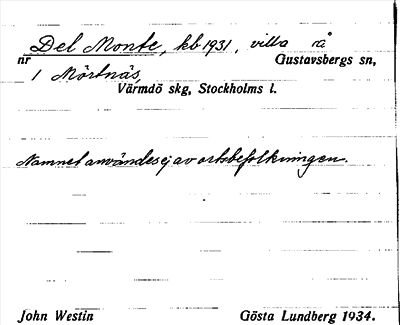 Del Monte, kb 1931, villa på
nr Gustavsbergs sn,
1 Mörtnäs,
Värmdö skg, Stockholms l.
Namnet användes ej av ortsbefolkningen.
John Westin Gösta Lundberg 1934.